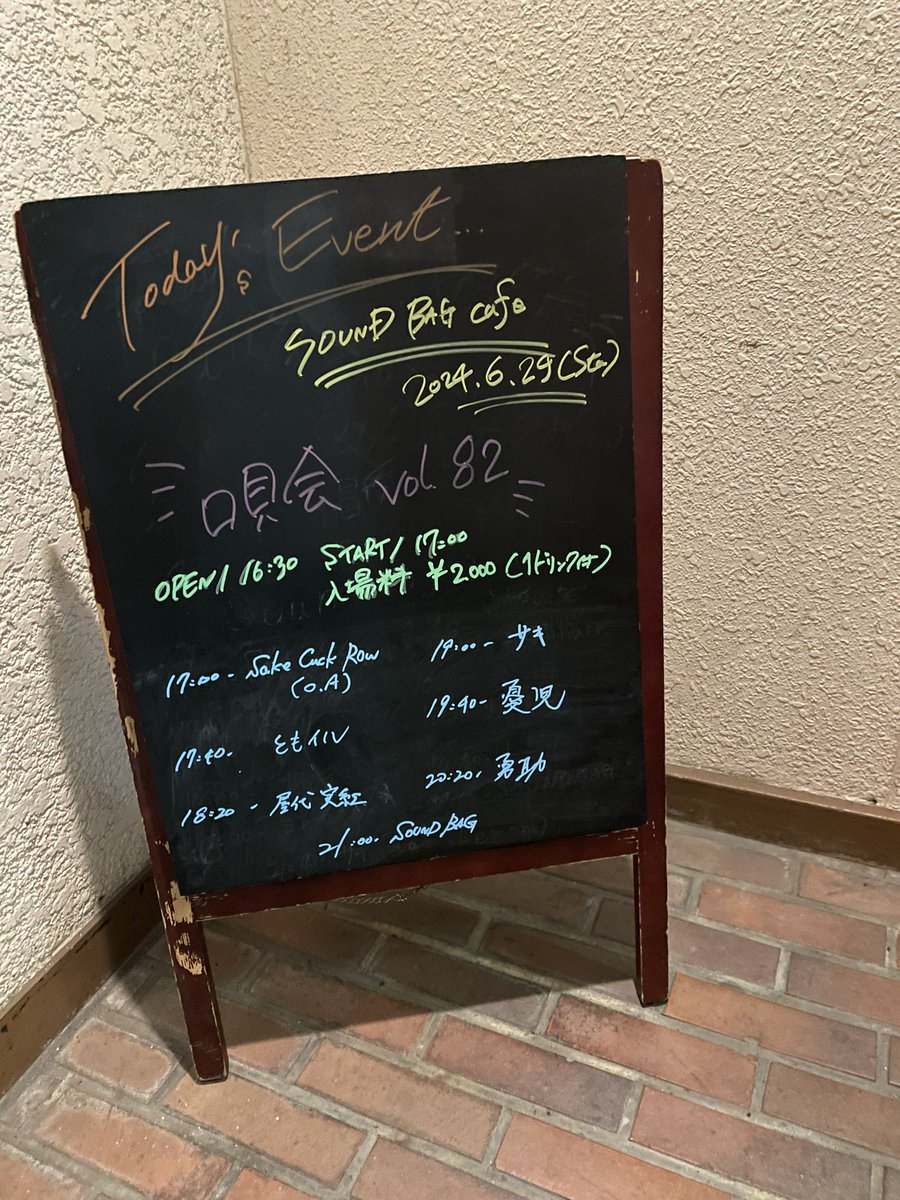 Today's Event...
SOUND BAG cafe
2024.6.29 (Sta)
唄会 vol.82
OPEN/16:30 START/17:00
入場料 ¥2000 (1ドリンク付)
17:00- Sake Cuck Row
(O.A)
17:40- ともイル
18:20- 屋代実紅
19:00- サキ
19:40- 憂児
20:20- 勇助
21:00- SOUND BAG